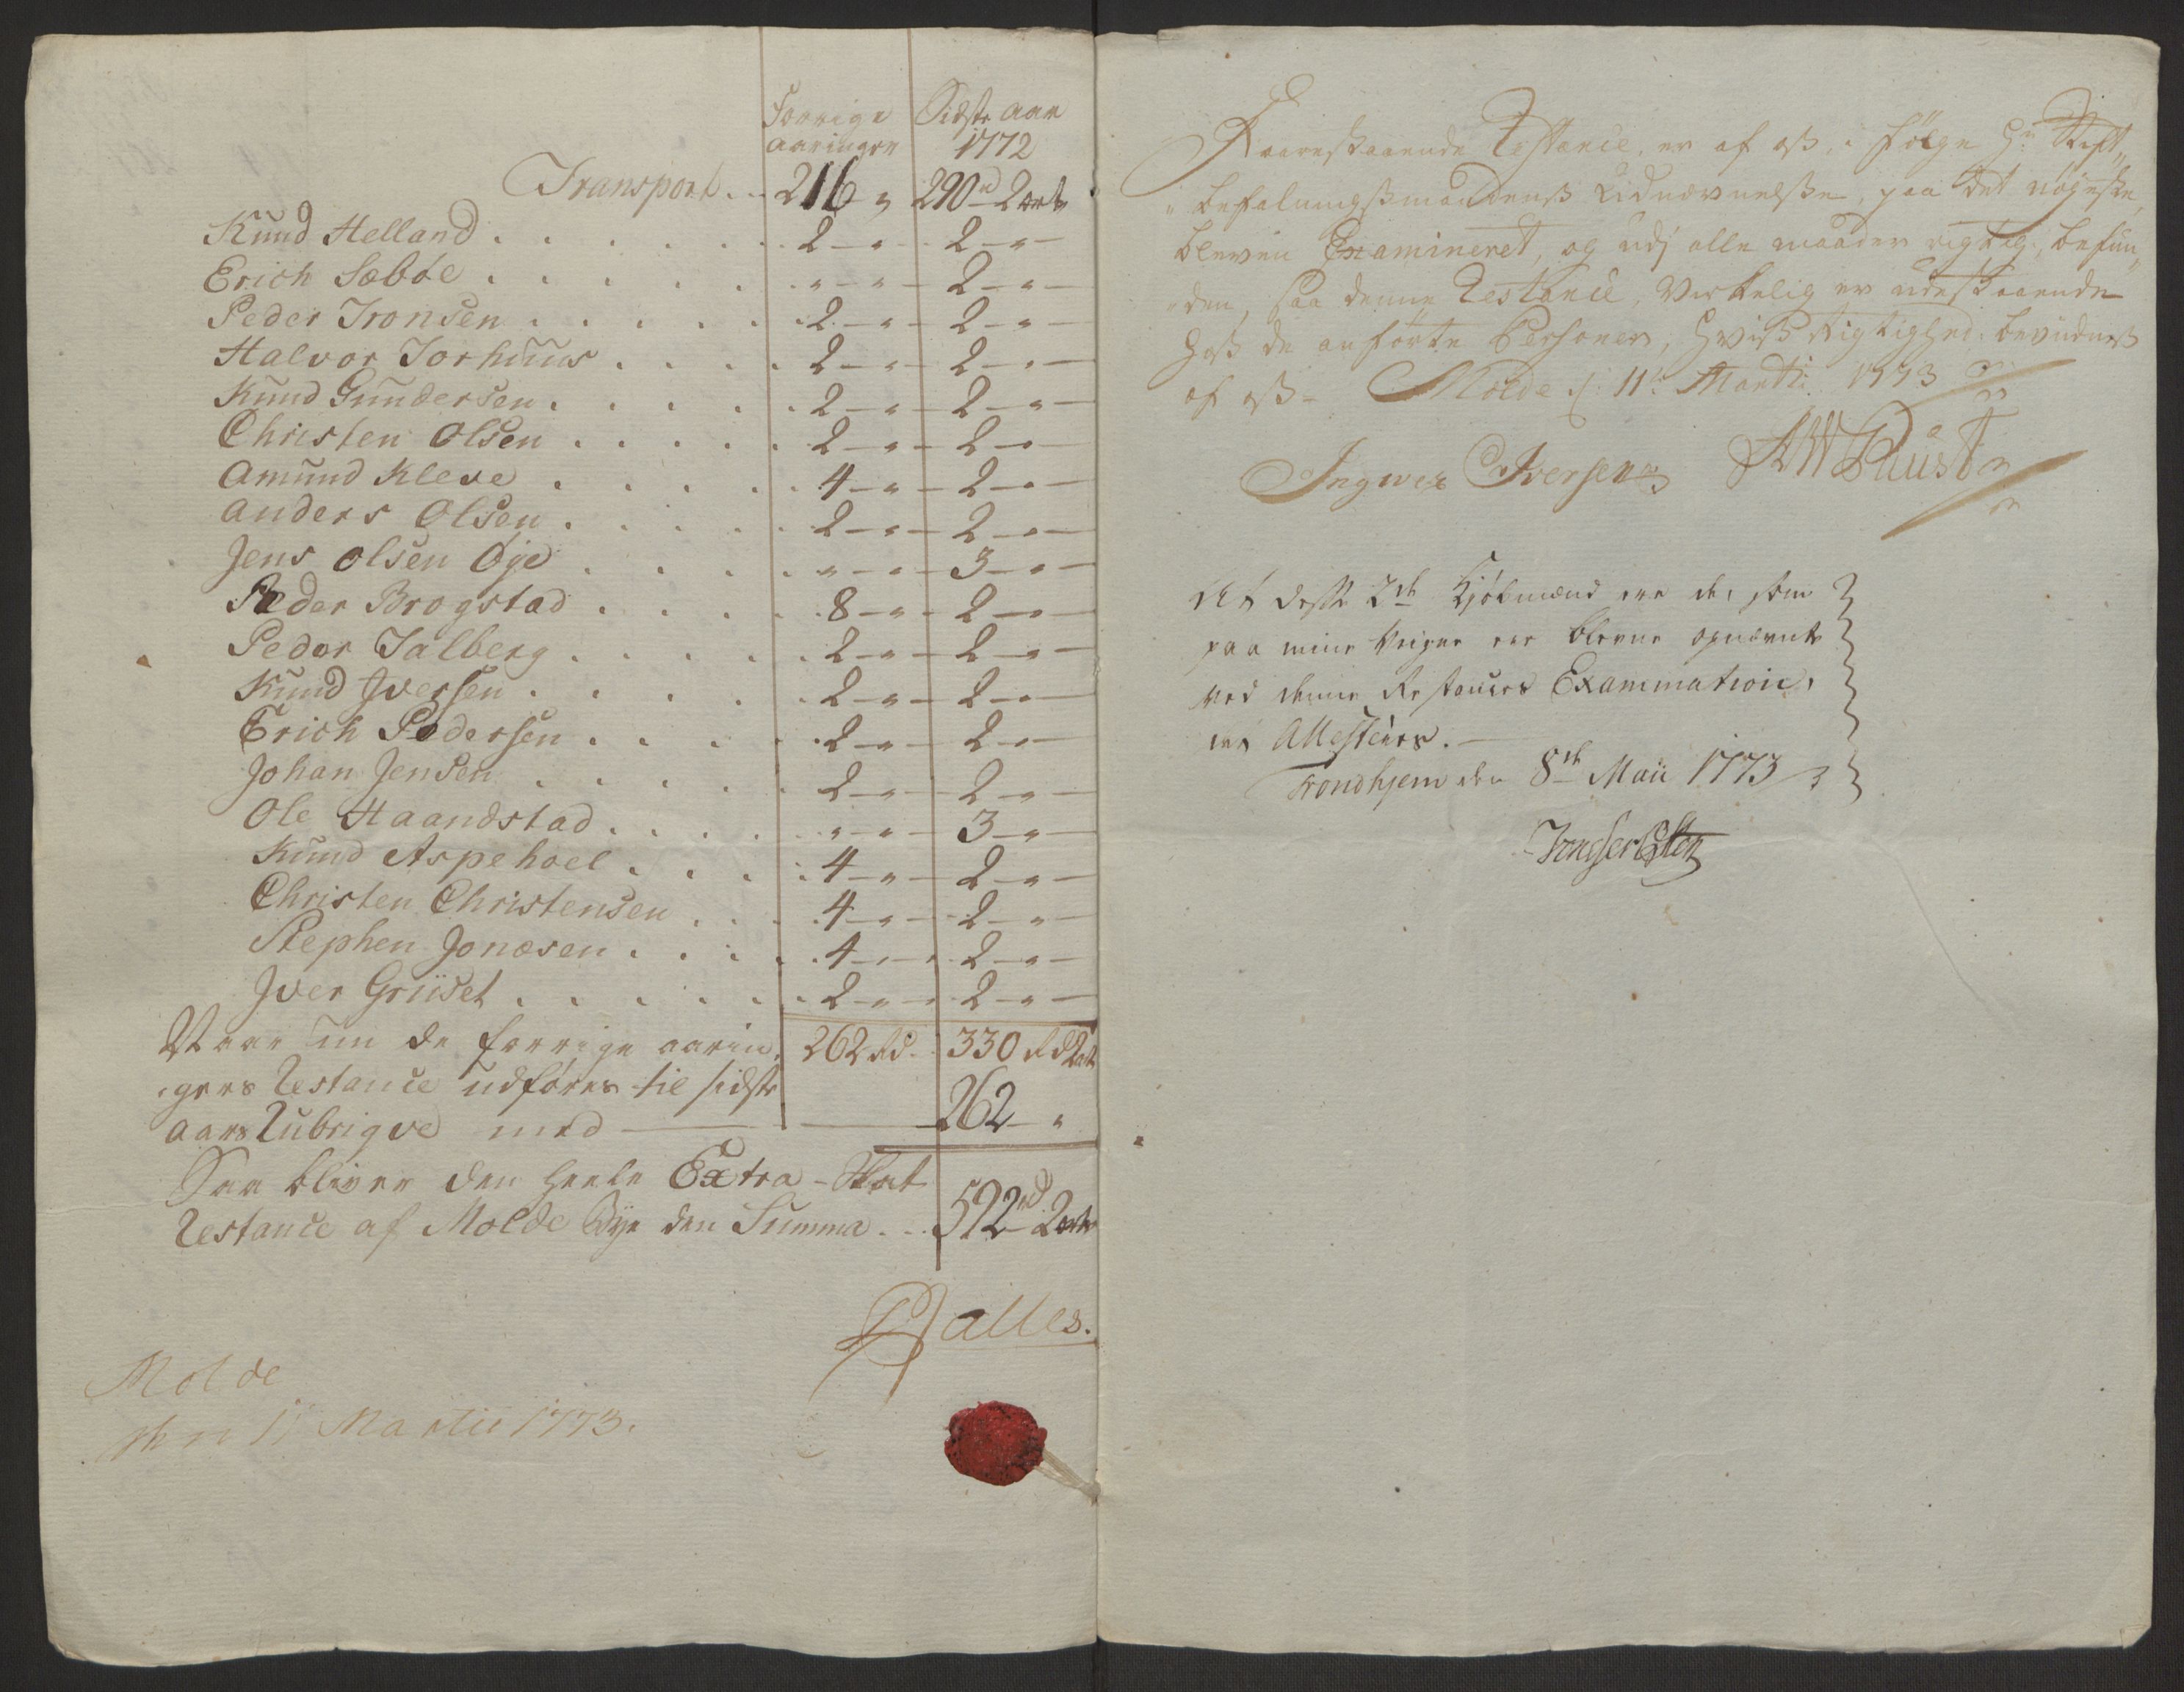 Forrige Sidste Aar
aaringer 1772
Transport . . 216 „ 290 rd 2 ort
Knud Helland . . . . . . 2 – „ – 2 – „ –
Erich Sæbøe . . . . . „ – „ – 2 – „ –
Peder Tronsen . . . . . 2 – „ – 2 – „ –
Halvor Torhuus . . . . 2 – „ – 2 – „ –
Knud Gundersen . . . . . 2 – „ – 2 – „ –
Christen Olsen . . . . . 2 – „ – 2 – „ –
Amund Kleve . . . . . 4 – „ – 2 – „ –
Anders Olsen . . . . . 2 – „ – 2 – „ –
Jens Olsen Øye . . . . . „ – „ – 3 – „ –
Peder Brogstad . . . . 8 – „ – 2 – „ –
Peder Talberg . . . . . 2 – „ – 2 – „ –
Knud Iversen . . . . . 2 – „ – 2 – „ –
Erich Pedersen . . . . 2 – „ – 2 – „ –
Johan Jensen . . . . . 2 – „ – 2 – „ –
Ole Haandstad . . . . „ – „ – 3 – „ –
Knud Aspehoel . . . . 4 – „ – 2 – „ –
Christen Christensen . . . 4 – „ – 2 – „ –
Stephen Jonæsen . . . . 4 – „ – 2 – „ –
Iver Griiset . . . . . . 2 – „ – 2 – „ –
Naar nu de forrige aarin„ 262 Rd. 330 Rd 2 ort
„gers Restance udføres til sidste
Aars Rubriqve med — 262 – „
Saa bliver den heele Extra-Skat
Restance af Molde Bye den Summa . . 592 rd 2 ort
Dalles.
Molde
den 11 Martii 1773.
Foranstaaende Restance, er af oß, i følge Hr. Stift„
„befalningsmandens Udnævnelse, paa det nøyeste,
bleven Examineret, og udj alle maader rigtig befun„
„den, saa denne Restance, Virkelig er udestaaende
hoß de anførte Personer, hvis Rigtighed bevidnes
af oß – Molde d: 11te Martii 1773
Ingwer Iversen AWPaust
At disse 2de Kjøbmænd ere de, som
paa mine Veigne ere blevne opnævnte
ved denne Restances Examination,
det Attesteres. –
Trondhjem den 8de Maii 1773